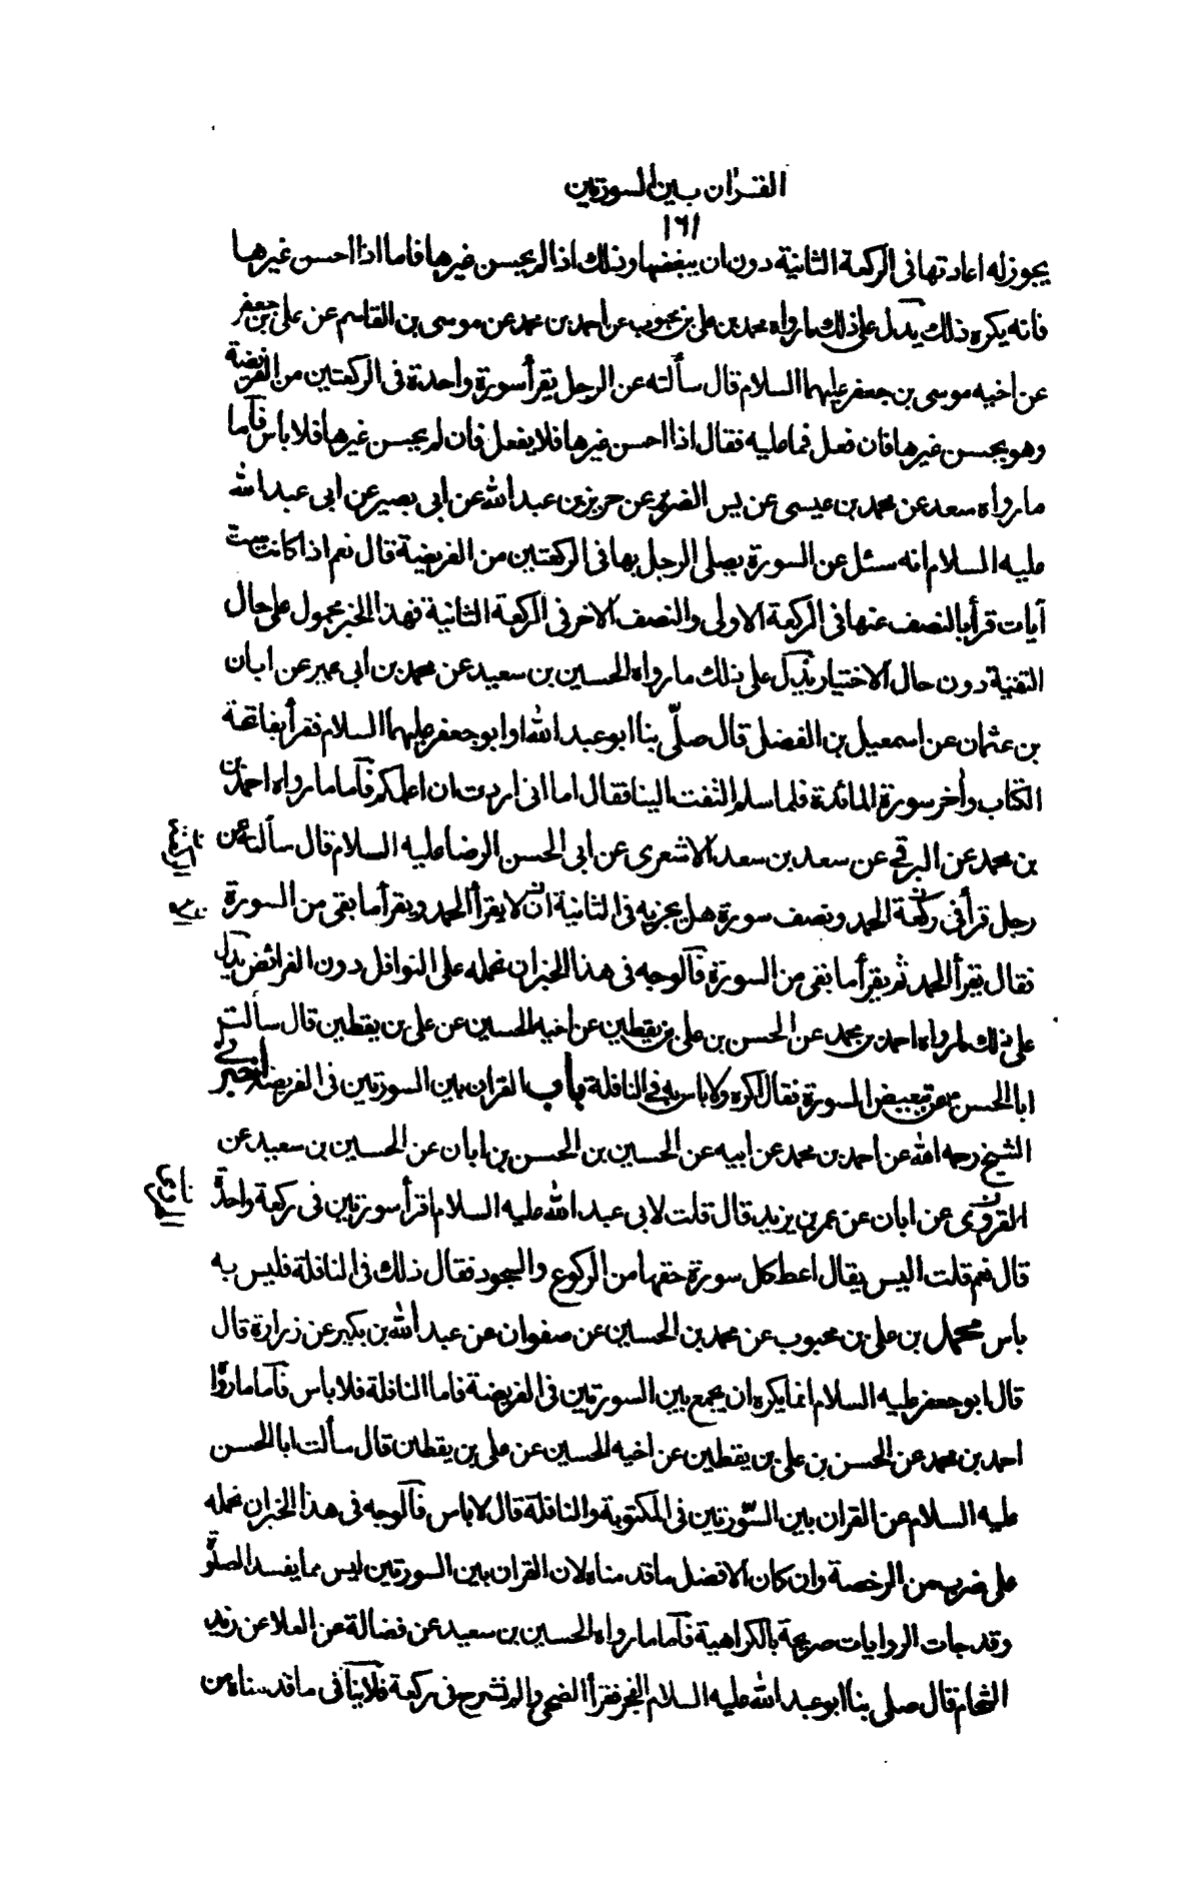 القران بين السورتين
١٦١
يجوز له اعادتها فى الركعة الثانية دون ان يبغضها وذلك اذا لم يحسن غيرها فاما اذا احسن غيرها
فانه يكره ذلك يدل على ذلك ما رواه محمد بن على بن محبوب عن احمد بن محمد عن موسى بن القاسم عن على بن جعفر
عن اخيه موسى بن جعفر عليهما السلام قال سألته عن الرجل يقرأ سورة واحدة فى الركعتين من الفريضة
وهو يحسن غيرها فان فعل فما عليه فقال اذا احسن غيرها فلا يفعل فان لم يحسن غيرها فلا باس فاما
ما رواه سعد عن محمد بن عيسى عن يس الضرير عن حريز بن عبد الله عن ابى بصير عن ابى عبد الله
عليه السلام انه سئل عن السورة يصلى الرجل بها فى الركعتين من الفريضة قال نعم اذا كانت ست
آيات قرأ بالنصف عنها فى الركعة الاولى والنصف الاخر فى الركعة الثانية فهذا الخبر محمول على حال
التقية دون حال الاختيار يدل على ذلك ما رواه الحسين بن سعيد عن محمد بن ابى عمير عن ابان
بن عثمان عن اسمعيل بن الفضل قال صلّى بنا ابو عبد الله او ابو جعفر عليهما السلام فقرأ بفاتحة
الكتاب واخر سورة المائدة فلما سلم التفت الينا فقال اما انى اردت ان اعلمكم فاما ما رواه احمد بن
بن محمد عن البرقى عن سعد بن سعد الاشعرى عن ابى الحسن الرضا عليه السلام قال سألته عن
رجل قرأ فى ركعة الحمد ونصف سورة هل يجزيه فى الثانية ان لا يقرأ الحمد ويقرأ ما بقى من السورة
فقال يقرأ الحمد ثم يقرأ ما بقى من السورة فالوجه فى هذا الخبر ان نحمله على النوافل دون الفرائض يدل
على ذلك ما رواه احمد بن محمد عن الحسن بن على بن يقطين عن اخيه الحسين عن على بن يقطين قال سألت
ابا الحسن ع عن تبعيض السورة فقال اكره ولا باس به فى النافلة باب القران بين السورتين فى الفريضة اخبرنى
الشيخ رحمه الله عن احمد بن محمد عن ابيه عن الحسين بن الحسن بن ابان عن الحسين بن سعيد عن
القروى عن ابان عن عمر بن يزيد قال قلت لابى عبد الله عليه السلام اقرأ سورتين فى ركعة واحدة
قال نعم قلت اليس يقال اعط كل سورة حقها من الركوع والسجود فقال ذلك فى النافلة فليس به
باس محمد بن على بن محبوب عن محمد بن الحسين عن صفوان عن عبد الله بن بكير عن زرارة قال
قال ابو جعفر عليه السلام انما يكره ان يجمع بين السورتين فى الفريضة فاما النافلة فلا باس فاما ما رواه
احمد بن محمد عن الحسن بن على بن يقطين عن اخيه الحسين عن على بن يقطين قال سألت ابا الحسن
عليه السلام عن القران بين السّورتين فى المكتوبة والنافلة قال لا باس فالوجه فى هذا الخبر ان نحمله
على ضرب من الرخصة وان كان الافضل ما قدمناه لان القران بين السورتين ليس مما يفسد الصلوة
وقد جات الروايات صريحة بالكراهية فاما ما رواه الحسين بن سعيد عن فضالة عن العلا عن زيد
الشحام قال صلى بنا ابو عبد الله عليه السلام الفجر فقرأ الضحى والم نشرح فى ركعة فلا ينافى ما قدمناه من